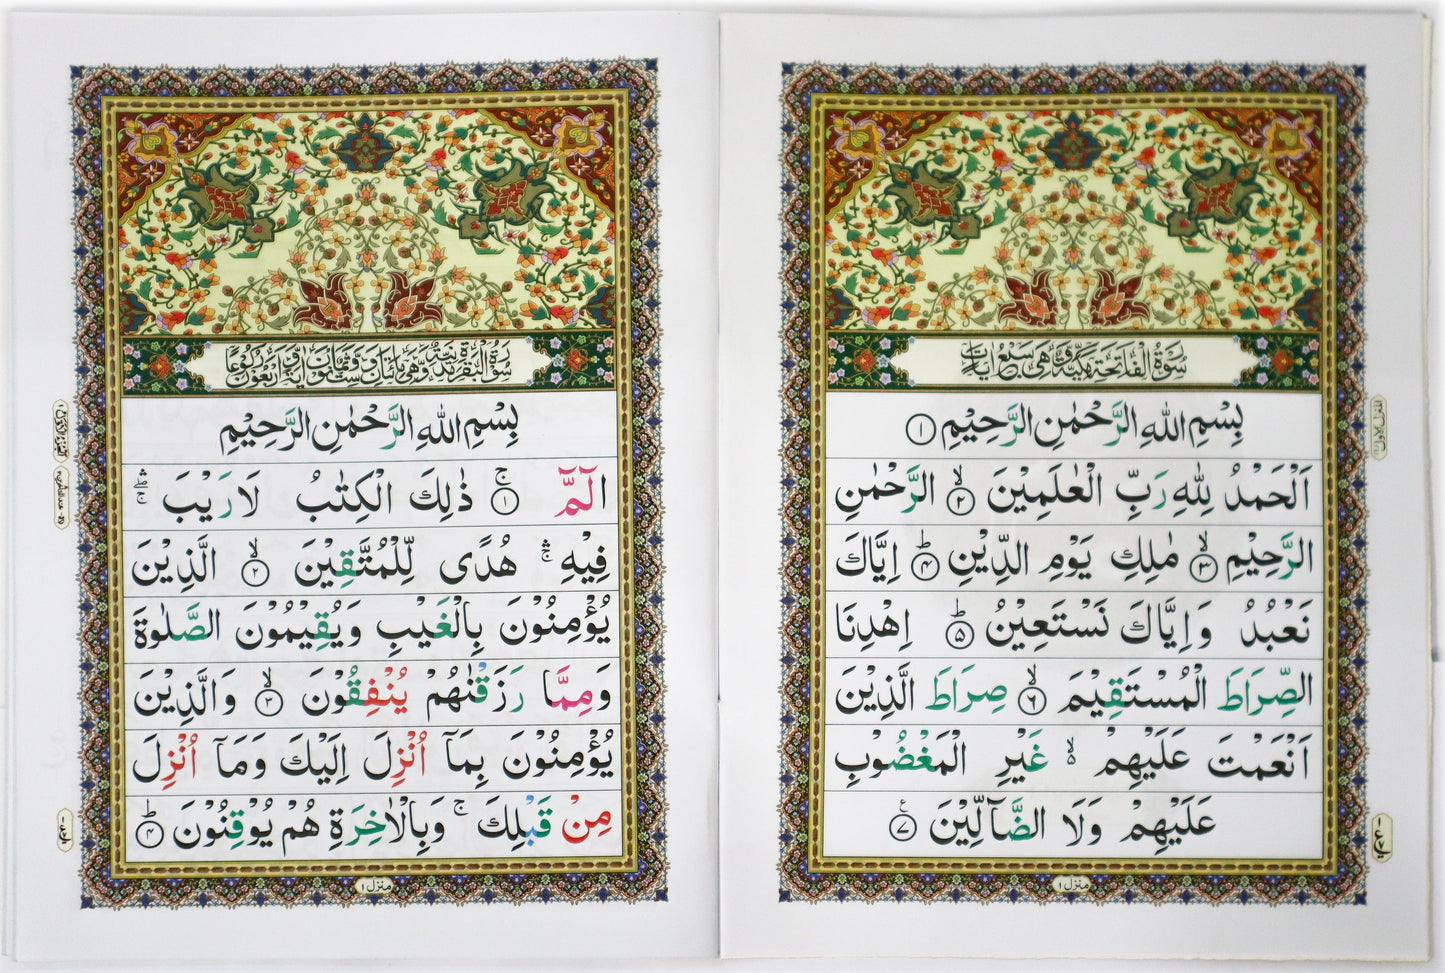 سُوْرَةُ الْفَاتِحَةِ مَكِّيَّةٌ وَّهِىَ سَبْعُ اٰيَاتٍ
بِسْمِ اللهِ الرَّحْمٰنِ الرَّحِيْمِ ۝١
اَلْحَمْدُ لِلّٰهِ رَبِّ الْعٰلَمِيْنَ ۝٢ۙ الرَّحْمٰنِ
الرَّحِيْمِ ۝٣ۙ مٰلِكِ يَوْمِ الدِّيْنِ ۝٤ؕ اِيَّاكَ
نَعْبُدُ وَاِيَّاكَ نَسْتَعِيْنُ ۝٥ؕ اِهْدِنَا
الصِّرَاطَ الْمُسْتَقِيْمَ ۝٦ۙ صِرَاطَ الَّذِيْنَ
اَنْعَمْتَ عَلَيْهِمْ ۙ۬ غَيْرِ الْمَغْضُوْبِ
عَلَيْهِمْ وَلَا الضَّآلِّيْنَ ۝٧
منزل ١
سُوْرَةُ الْبَقَرَةِ مَدَنِيَّةٌ وَّهِىَ مِائَتَانِ وَسِتٌّ وَّثَمَانُوْنَ اٰيَةً وَّاَرْبَعُوْنَ رُكُوْعًا
بِسْمِ اللهِ الرَّحْمٰنِ الرَّحِيْمِ
الٓمّٓ ۝١ۚ ذٰلِكَ الْكِتٰبُ لَا رَيْبَ ۛۖۚ
فِيْهِ ۛۚ هُدًى لِّلْمُتَّقِيْنَ ۝٢ۙ الَّذِيْنَ
يُؤْمِنُوْنَ بِالْغَيْبِ وَيُقِيْمُوْنَ الصَّلٰوةَ
وَمِمَّا رَزَقْنٰهُمْ يُنْفِقُوْنَ ۝٣ۙ وَالَّذِيْنَ
يُؤْمِنُوْنَ بِمَآ اُنْزِلَ اِلَيْكَ وَمَآ اُنْزِلَ
مِنْ قَبْلِكَ ۚ وَبِالْاٰخِرَةِ هُمْ يُوْقِنُوْنَ ۝٤ؕ
منزل ١